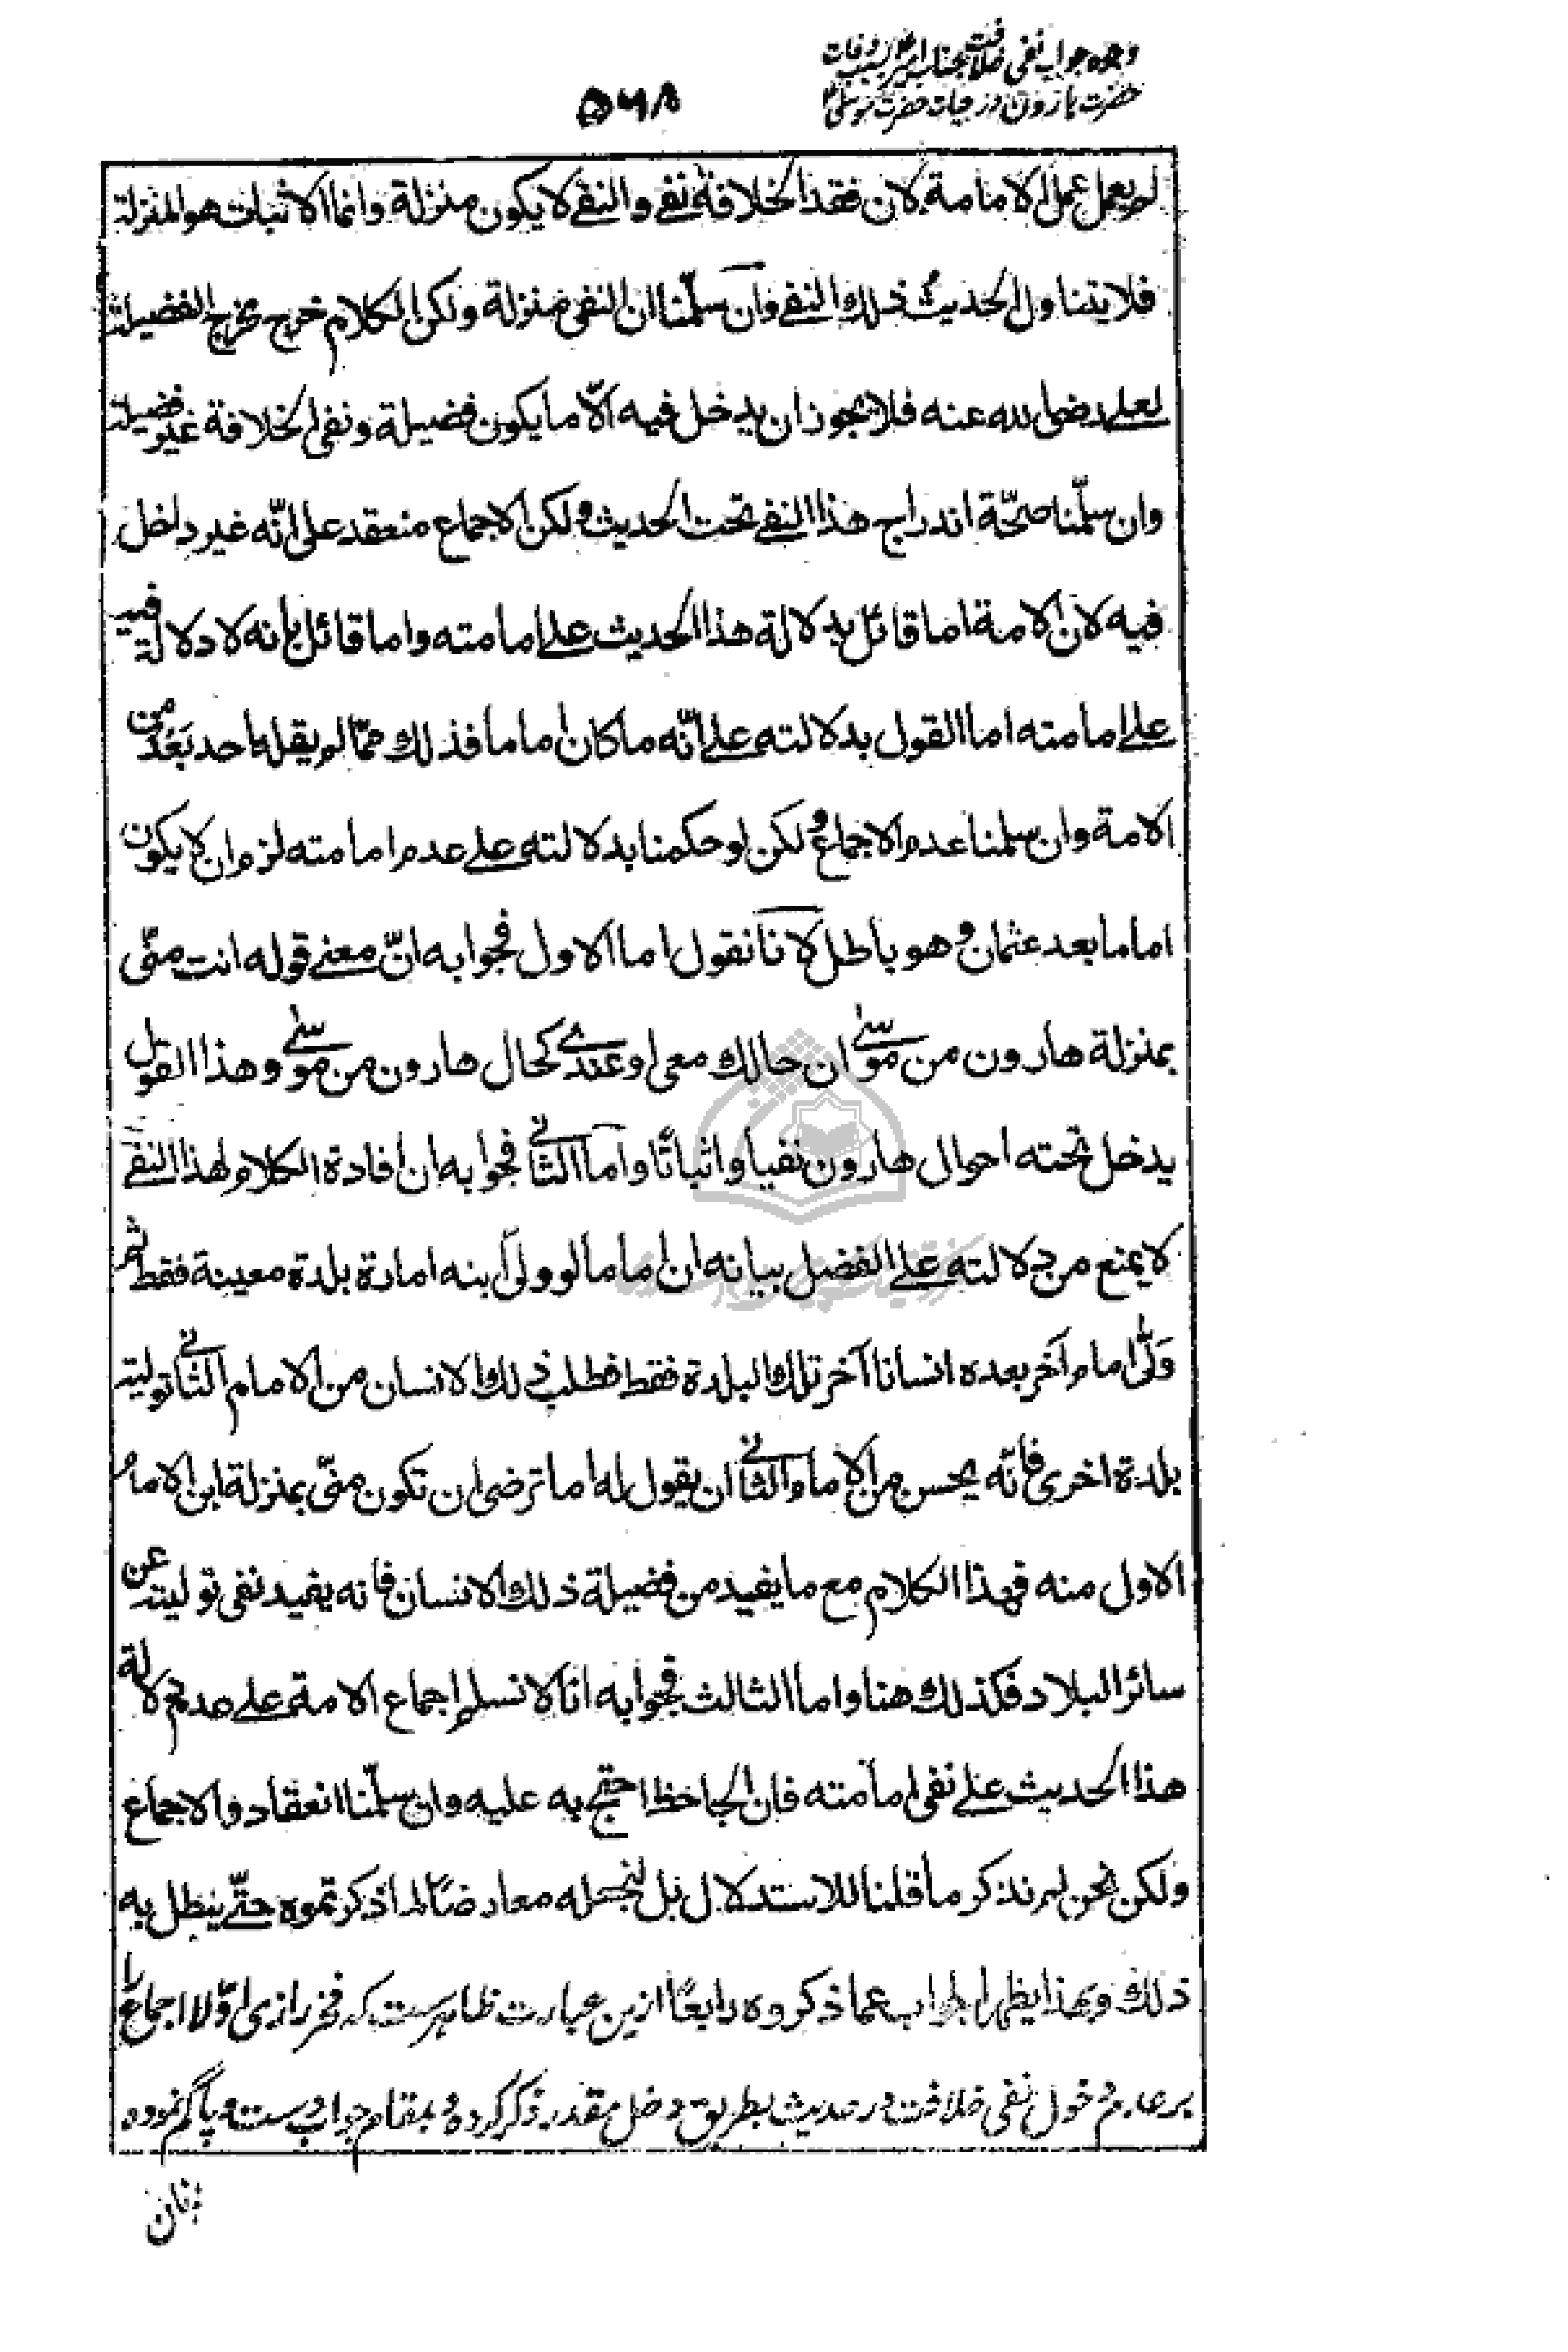 وجوه جواب نفی خلافت بجناب امیرؑ بسبب وفات
حضرت هارون در حیات حضرت موسیؑ
۵۶۸
لم یعمل عمل الامامة لان فقد الخلافة نفے والنفے لا یکون منزلة وانما الاثبات هو المنزلة
فلا یتناول الحدیث ذلك النفے وان سلّمنا ان النفی منزلة ولکن الکلام خرج مخرج الفضیلة
لعلے رضی الله عنه فلا یجوز ان یدخل فیه الّا ما یکون فضیلة ونفی الخلافة غیر فضیلة
وان سلّمنا صحّة اندراج هذا النفے تحت الحدیث ولکن الاجماع منعقد علی انّه غیر داخل
فیه لان الامة اما قائل بدلالة هذا الحدیث علے امامته واما قائل بانه لا دلالة فیه
علے امامته اما القول بدلالته علے انّه ما کان اماما فذلك ممّا لم یقله احد بَعْد من
الامة وان سلمنا عدم الاجماع ولکن لو حکمنا بدلالته علے عدم امامته لزم ان لا یکون
اماما بعد عثمان وهو باطل لانا نقول اما الاول فجوابه انّ معنے قوله انت منّی
بمنزلة هارون من موسٰے ان حالك معی او عندے کحال هارون من موسٰے وهذا القول
یدخل تحته احوال هارون نفیا واثباتًا واما الثانے فجوابه ان افادة الکلام لهذا النفے
لا یمنع من دلالته علے الفضل بیانه ان اماما لو ولّی ابنه امارة بلدة معینة فقط ثم
وَلّی امام آخر بعده انسانا آخر تلك البلدة فقط فطلب ذلك الانسان من الامام الثانے تولیة
بلدة اخری فانّه یحسن من الامام الثانے ان یقول له اما ترضی ان تکون منّی بمنزلة ابن الامام
الاول منه فهذا الکلام مع ما یفید من فضیلة ذلك الانسان فانه یفید نفی تولیته عن
سائر البلاد فکذلك هنا واما الثالث فجوابه انّا لا نسلم اجماع الامة علے عدم دلالة
هذا الحدیث علے نفی امامته فان الجاحظ احتج به علیه وان سلّمنا انعقاد الاجماع
ولکن نحن لم نذکر ما قلنا للاستدلال بل لنجعله معارضًا لما ذکرتموه حتّے یبطل به
ذلك وبهذا یظهر الجواب عما ذکروه رابعًا ازین عبارت ظاهرست که فخر رازی اوّلا اجماع را
بر عدم دخول نفی خلافت در حدیث بطریق دخل مقدر ذکر کرده و بمقام جواب دست و پا گم نموده